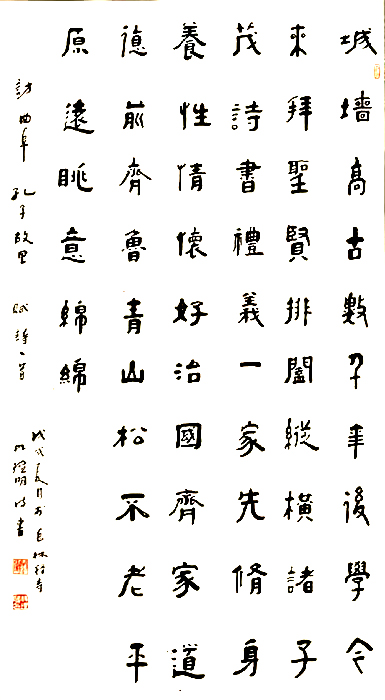 城墻高古數千年後學今
來拜聖賢排闔縱橫諸子
茂詩書禮義一家先脩身
養性情懷好治國齊家道
德前齊魯青山松不老平
原遠眺意綿綿
訪曲阜孔子故里 賦詩一首
戊戌夏月於林禪寺
明詩書